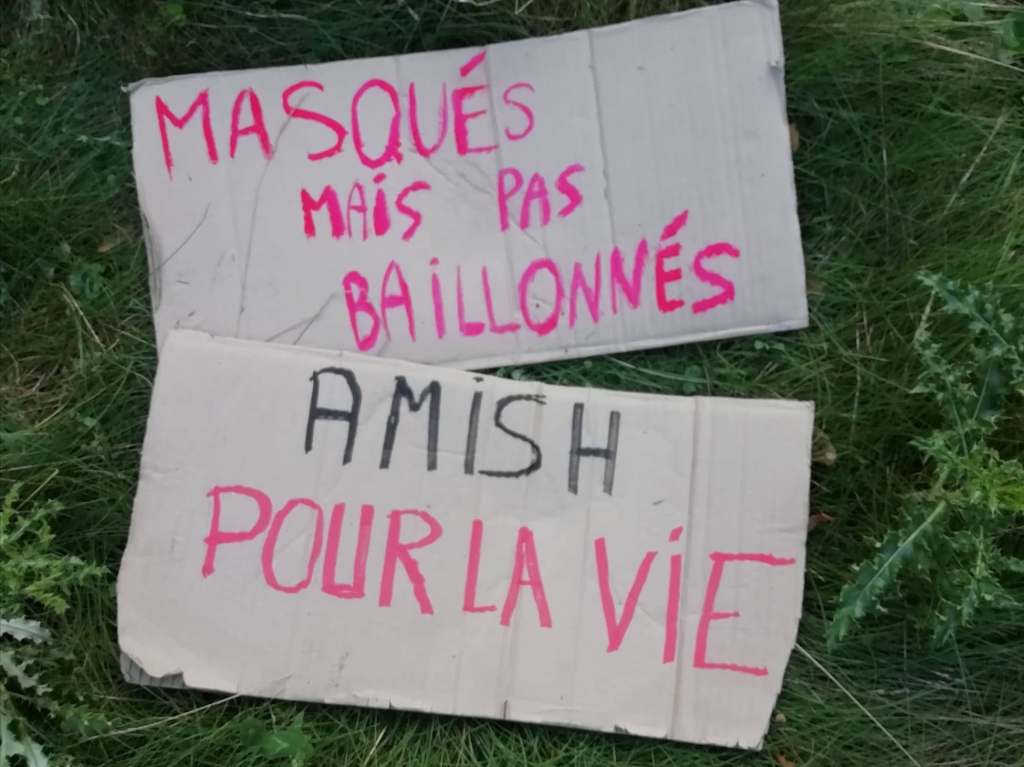 MASQUÉS
MAIS PAS
BAILLONNÉS
AMISH
POUR LA VIE